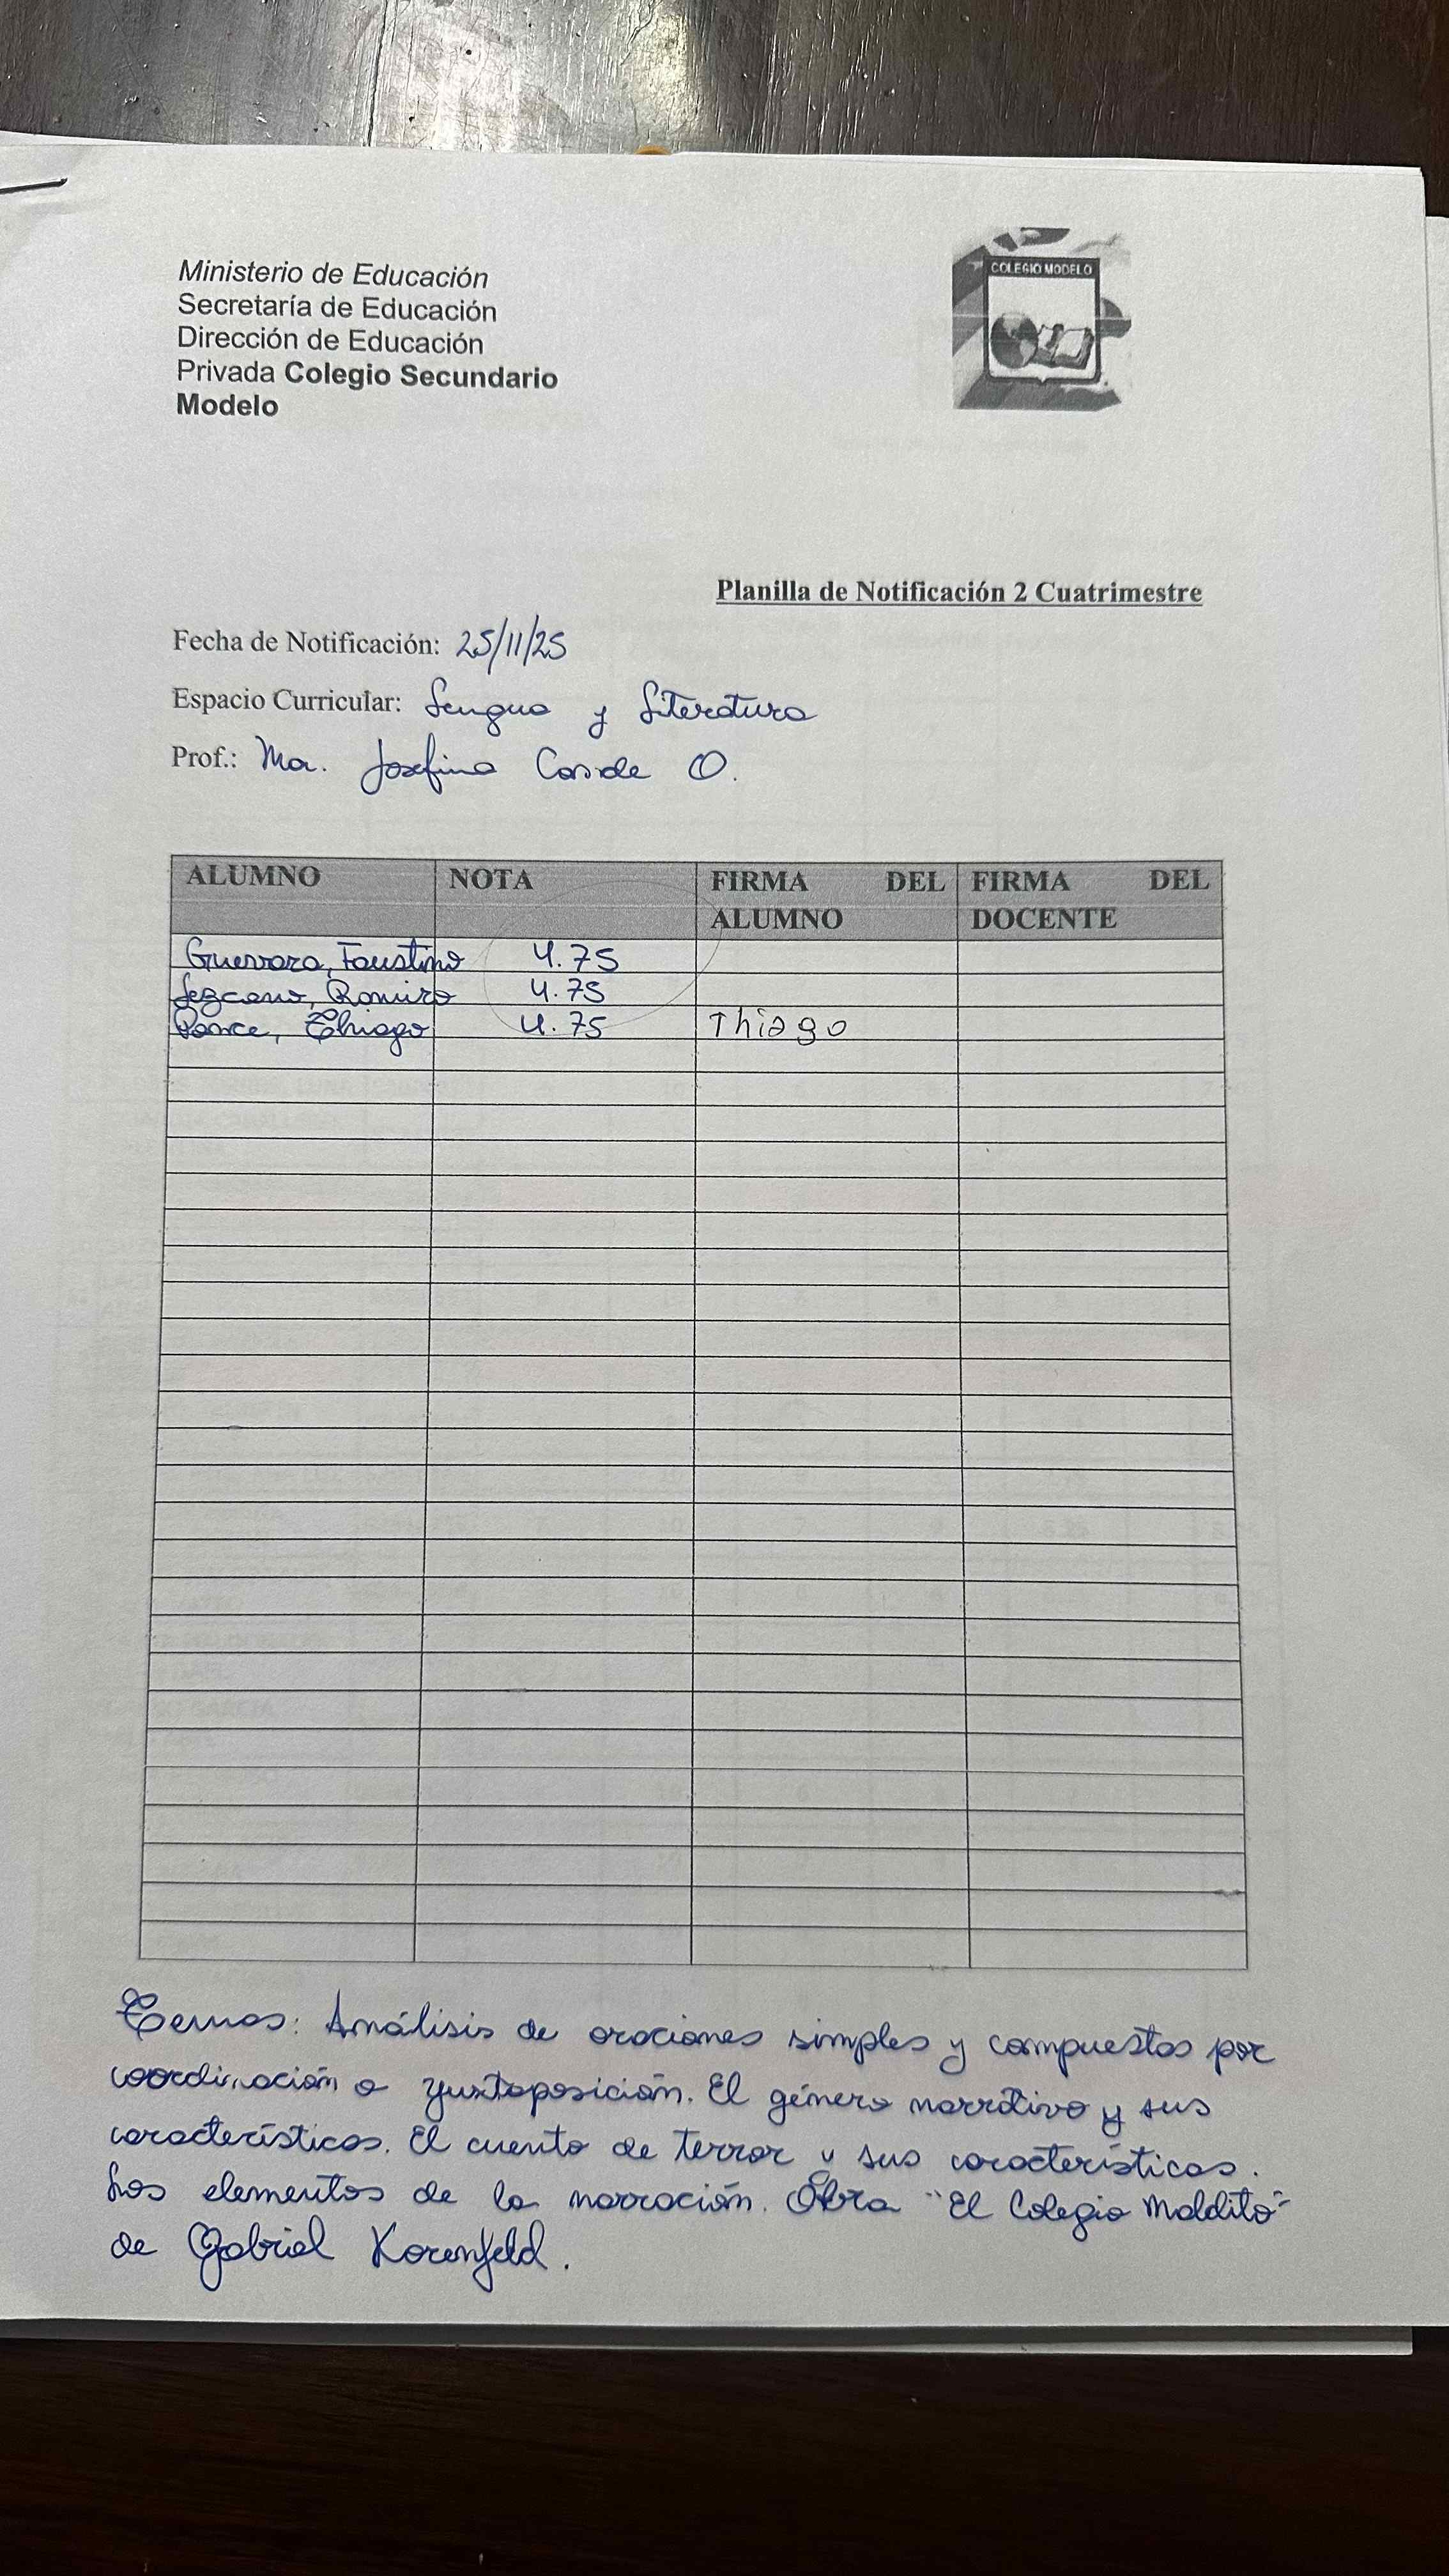 Ministerio de Educación
Secretaría de Educación
Dirección de Educación
Privada Colegio Secundario
Modelo
COLEGIO MODELO
Planilla de Notificación 2 Cuatrimestre
Fecha de Notificación: 25/11/25
Espacio Curricular: Lengua y Literatura
Prof.: Ma. Josefina O.
ALUMNO NOTA FIRMA DEL ALUMNO FIRMA DEL DOCENTE
Guevara, Faustino 4.75
Lezcano, Ramiro 4.75
Ponce, Thiago 4.75 Thiago
Temas: Análisis de oraciones simples y compuestas por
coordinación o yuxtaposición. El género narrativo y sus
características. El cuento de terror y sus características.
Los elementos de la narración. Obra "El Colegio Maldito"
de Gabriel Korenfeld.